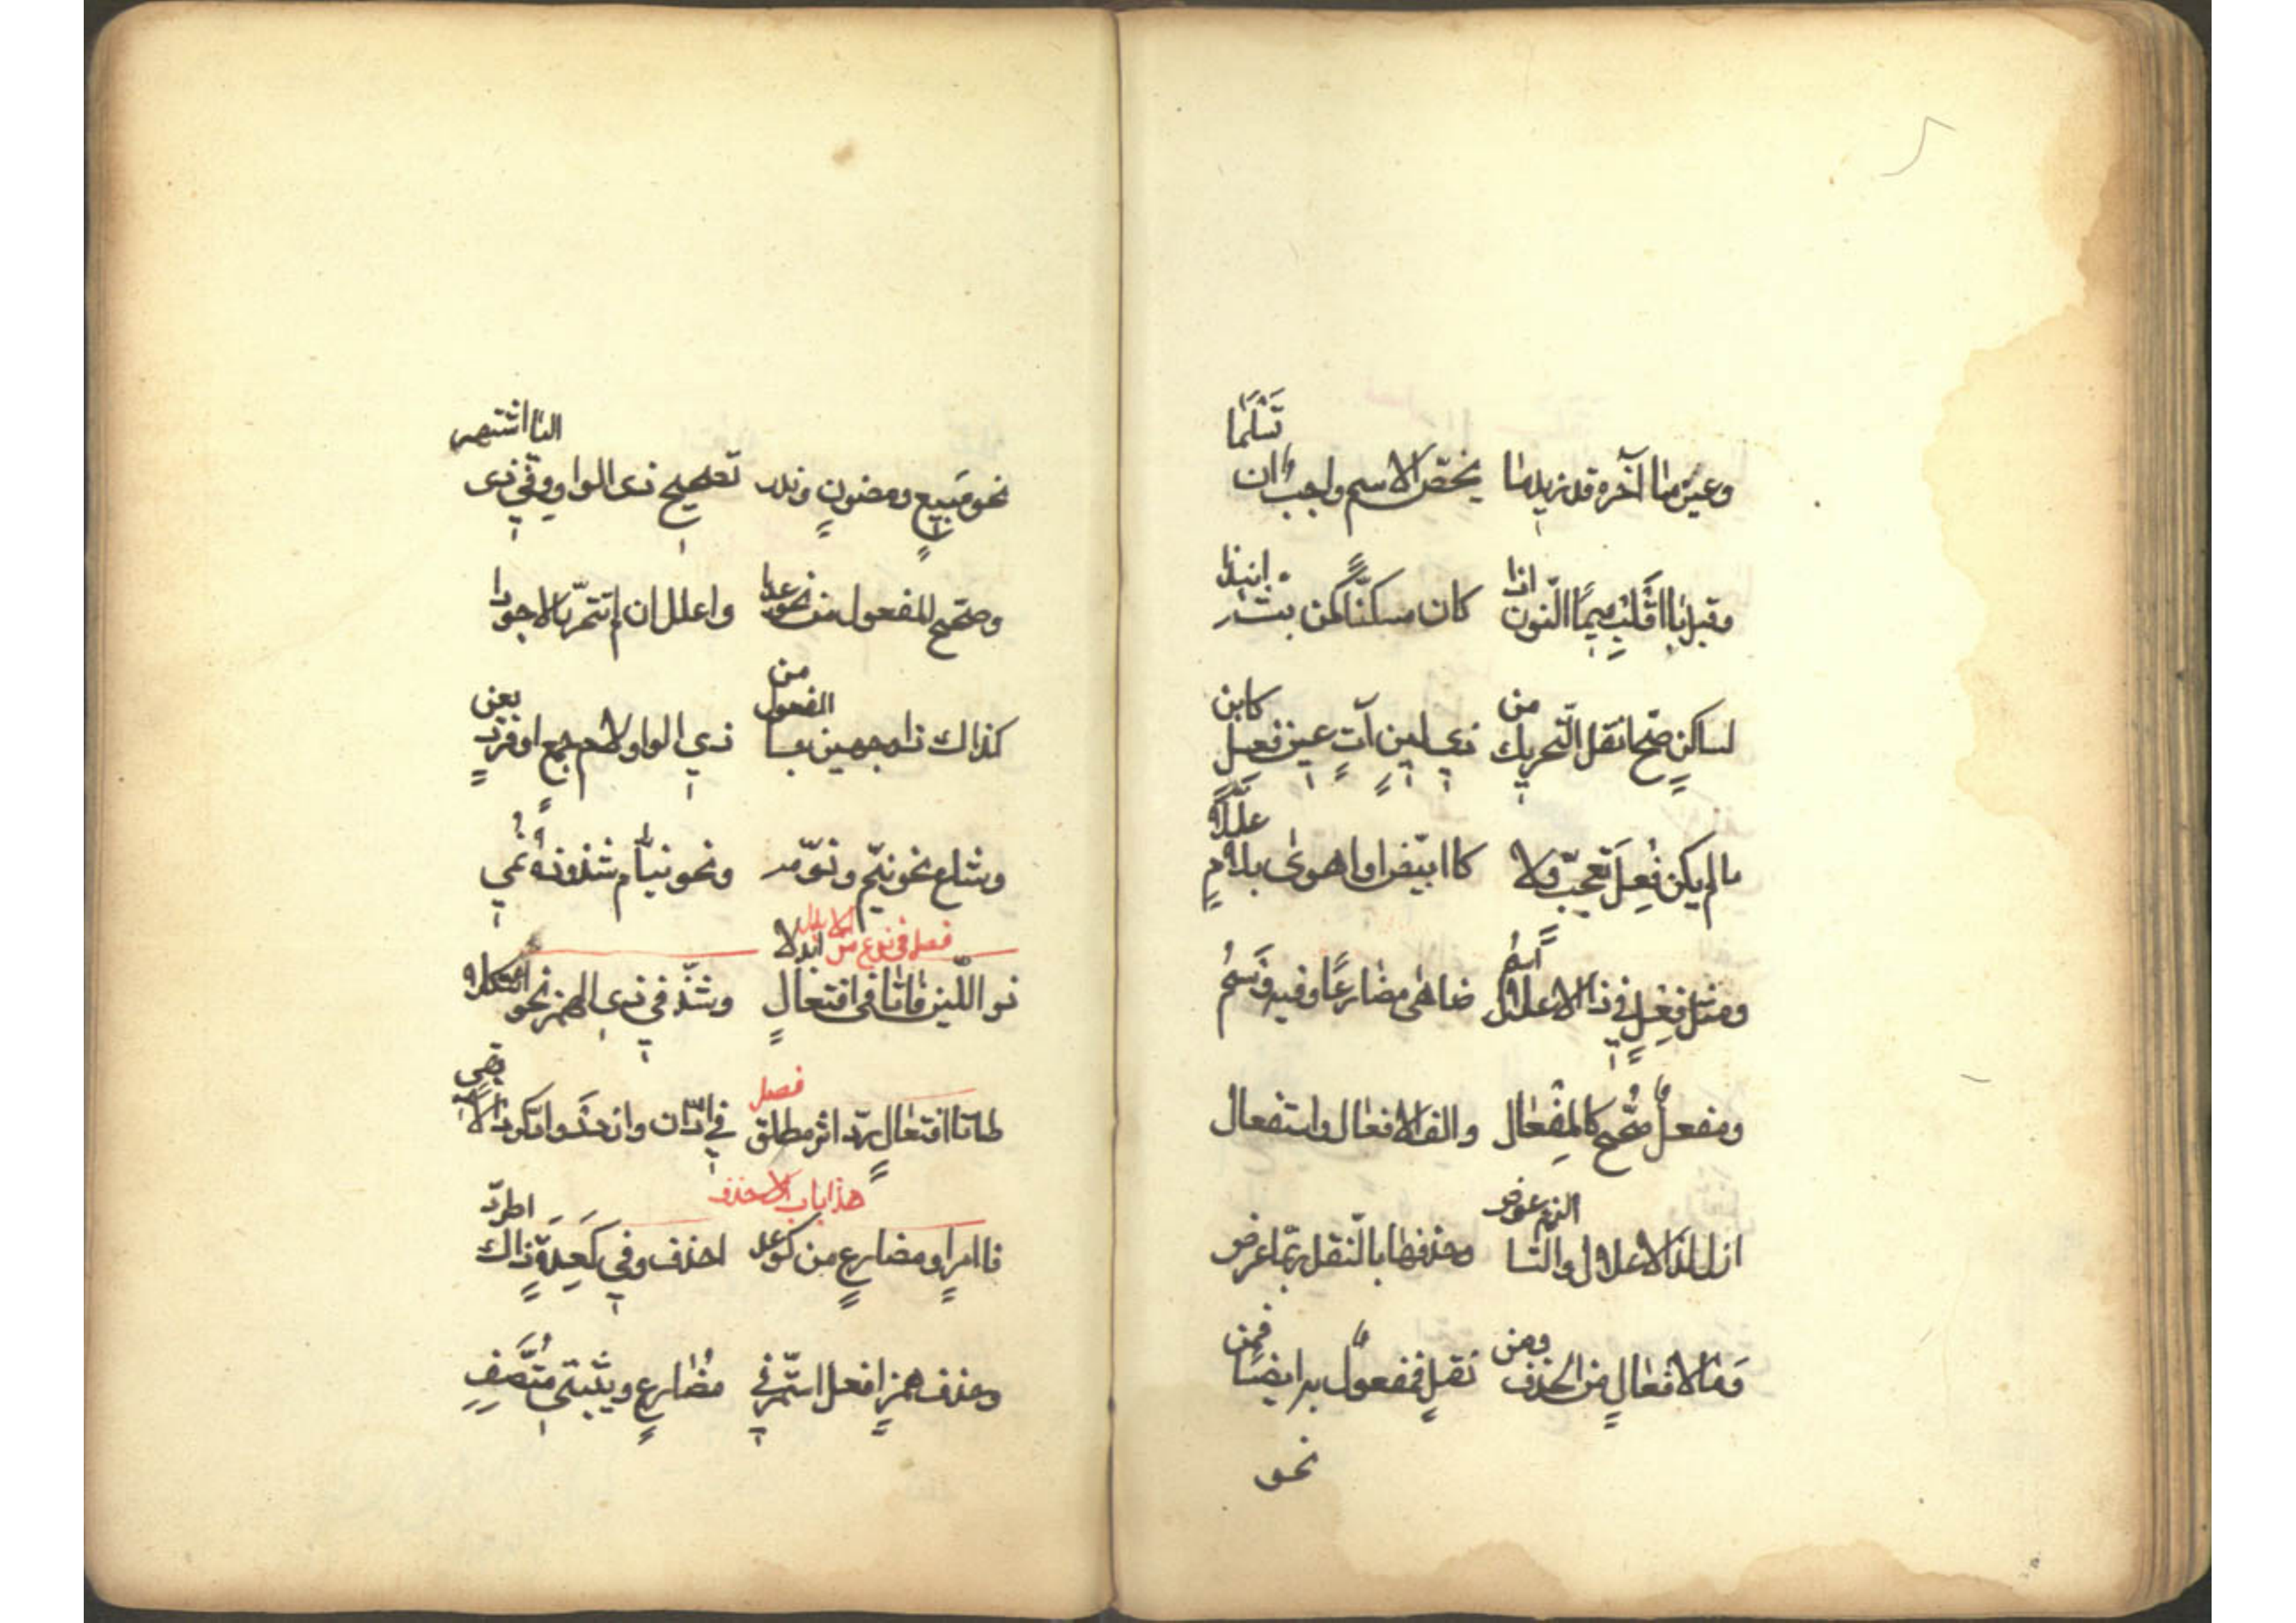 وعين ما آخره قد زيد ما يخص الاسم واجب ان تسلما
وقبل با اقلب ميما النون اذا كان مسكنا كمن بت انبذا
لساكن صح انقل التحريك من ذي لين آت عين فعل كابن
ما لم يكن فعل تعجب ولا كابيض او اهوى بلام عللا
ومثل فعل في ذا الاعلال اسم ضاهى مضارعا وفيه وسم
ومفعل صحح كالمفعال والف الافعال واستفعال
ازل لذا الاعلال والتا الزم عوض وحذفها بالنقل ربما عرض
وما لافعال من الحذف ومن نقل فمفعول به ايضا قمن
نحو
نحو مبيع ومصون وندر تصحيح ذي الواو وفي ذي اليا اشتهر
وصحح المفعول من نحو عدا واعلل ان لم تتحر الاجودا
كذاك ذا وجهين جا الفعول من ذي الواو لام جمع او فرد يعن
وشاع نحو نيم ونوم ونحو نيام شذوذه نمي
فصل في نوع من الابدال
ذو اللين فا تا في افتعال ابدلا وشذ في ذي الهمز نحو ائتكلا
فصل
طا تا افتعال رد اثر مطبق في ادان وازدد وادكر دالا بقي
هذا باب الحذف
فا امر او مضارع من كوعد احذف وفي كعدة ذاك اطرد
وحذف همز افعل استمر في مضارع وبنيتي متصف